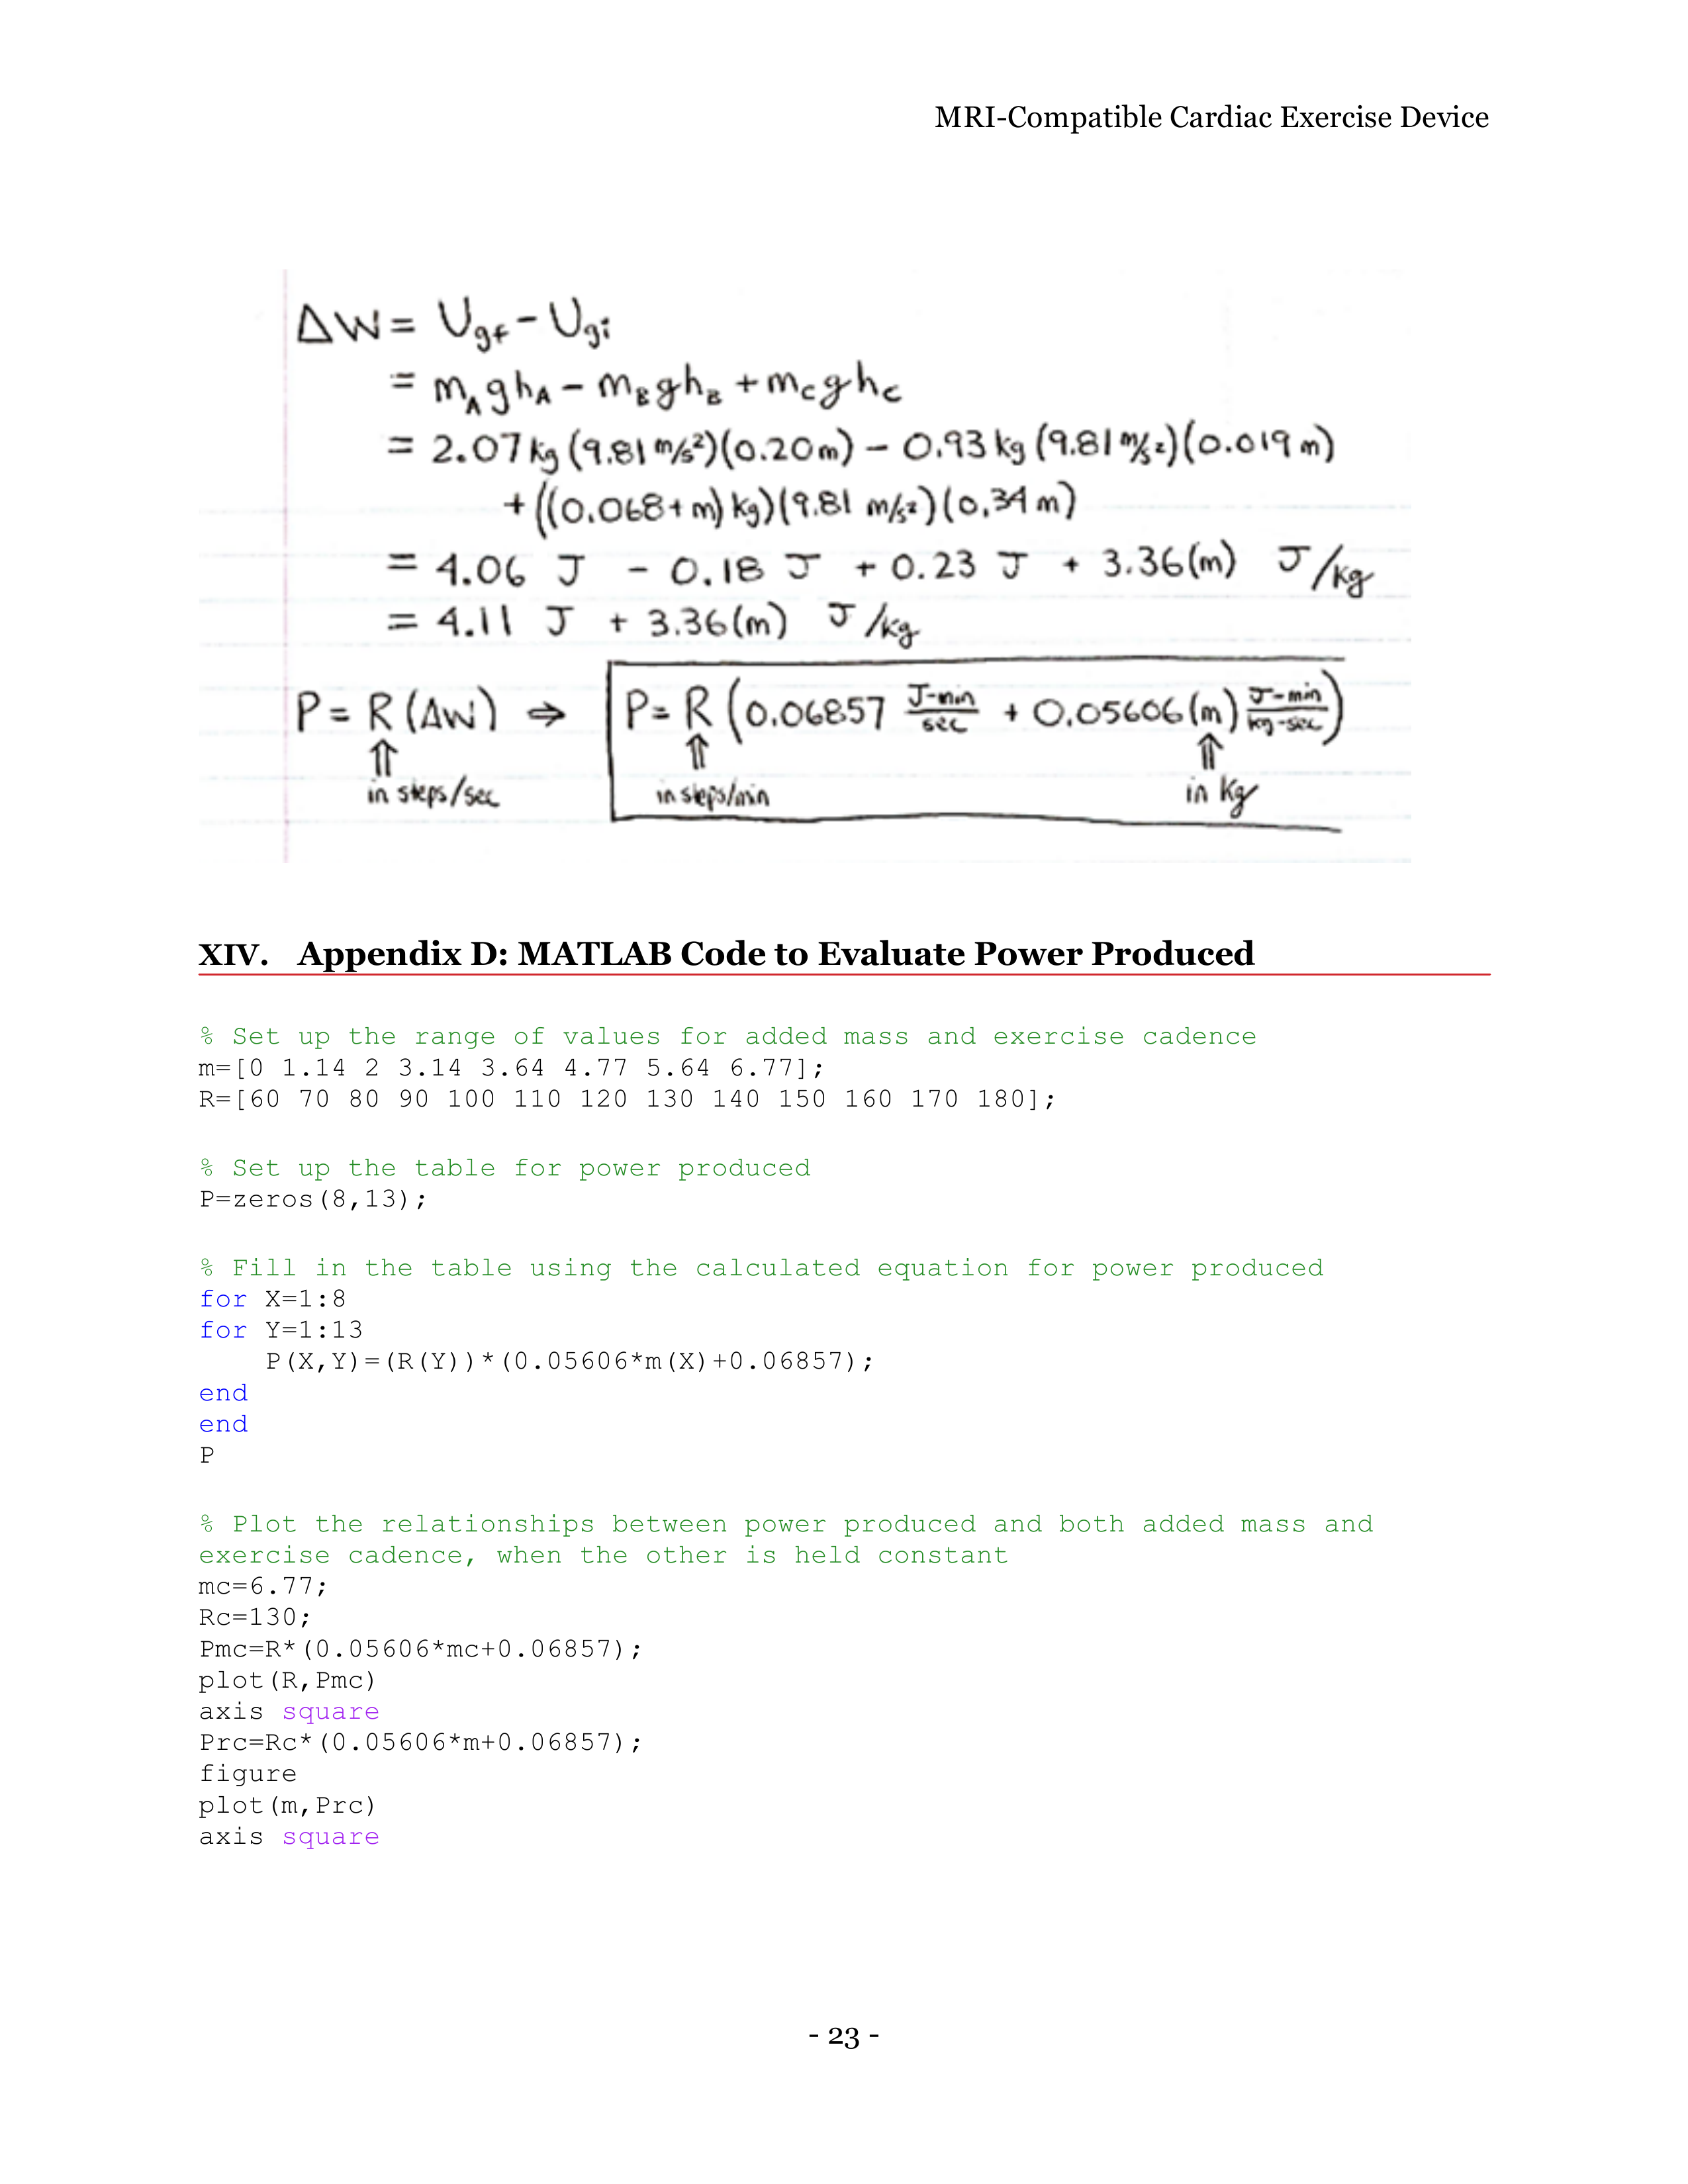 MRI-Compatible Cardiac Exercise Device
ΔW = Ugf - Ugi
= mA g hA - mB g hB + mC g hC
= 2.07 kg (9.81 m/s²)(0.20 m) - 0.93 kg (9.81 m/s²)(0.019 m)
+ ((0.068 + m) kg)(9.81 m/s²)(0.34 m)
= 4.06 J - 0.18 J + 0.23 J + 3.36(m) J/kg
= 4.11 J + 3.36(m) J/kg
P = R (ΔW) ⇒ P = R (0.06857 J-min/sec + 0.05606(m) J-min/kg-sec)
⇑ ⇑ ⇑
in steps/sec in steps/min in kg
XIV. Appendix D: MATLAB Code to Evaluate Power Produced
% Set up the range of values for added mass and exercise cadence
m=[0 1.14 2 3.14 3.64 4.77 5.64 6.77];
R=[60 70 80 90 100 110 120 130 140 150 160 170 180];
% Set up the table for power produced
P=zeros(8,13);
% Fill in the table using the calculated equation for power produced
for X=1:8
for Y=1:13
P(X,Y)=(R(Y))*(0.05606*m(X)+0.06857);
end
end
P
% Plot the relationships between power produced and both added mass and
exercise cadence, when the other is held constant
mc=6.77;
Rc=130;
Pmc=R*(0.05606*mc+0.06857);
plot(R,Pmc)
axis square
Prc=Rc*(0.05606*m+0.06857);
figure
plot(m,Prc)
axis square
- 23 -